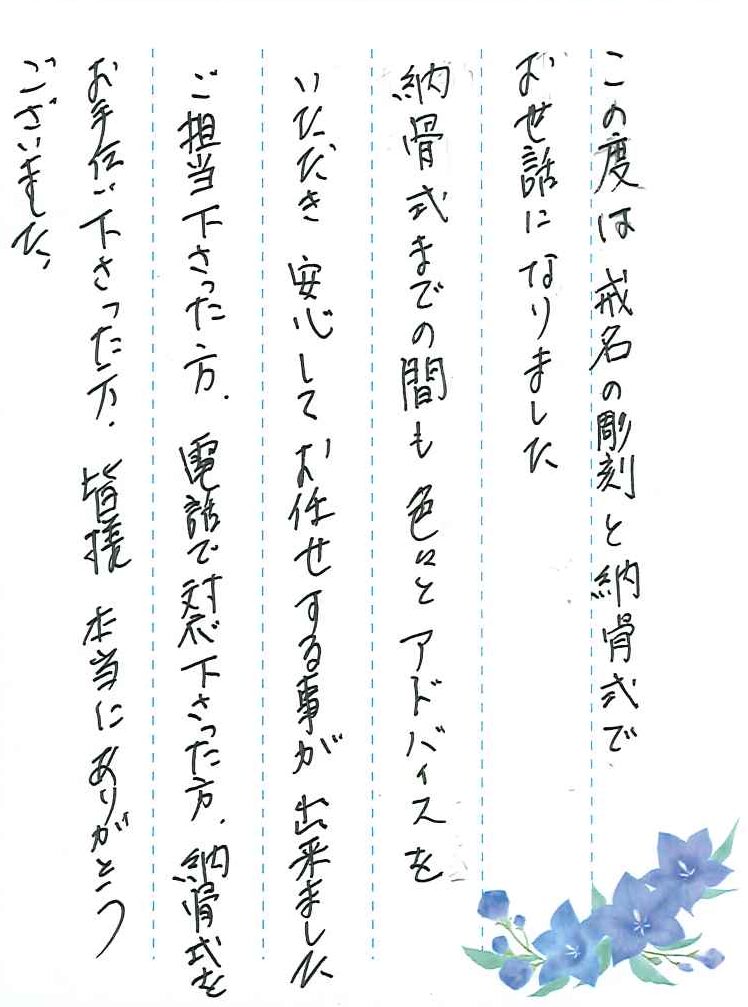 この度は 戒名の彫刻と納骨式で
お世話になりました
納骨式までの間も 色々とアドバイスを
いただき 安心して お任せする事が出来ました
ご担当下さった方、電話で対応下さった方、納骨式を
お手伝い下さった方、皆様 本当にありがとう
ございました